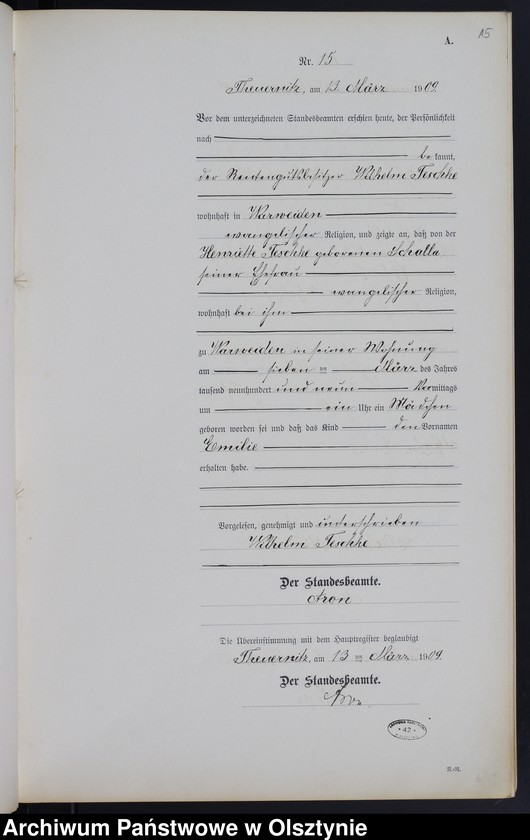 A.
15
Nr. 15
Theuernitz, am 13 März 1909
Vor dem unterzeichneten Standesbeamten erschien heute, der Persönlichkeit
nach
bekannt,
der Rentengutsbesitzer Wilhelm Teschke
wohnhaft in Warweiden
evangelischer Religion, und zeigte an, daß von der
Henriette Teschke geborenen Schalla
seiner Ehefrau
evangelischer Religion,
wohnhaft bei ihm
zu Warweiden in seiner Wohnung
am sieben ten März des Jahres
tausend neunhundert und neun Vormittags
um ein Uhr ein Mädchen
geboren worden sei und daß das Kind den Vornamen
Emilie
erhalten habe.
Vorgelesen, genehmigt und unterschrieben
Wilhelm Teschke
Der Standesbeamte.
Aron
Die Übereinstimmung mit dem Hauptregister beglaubigt
Theuernitz, am 13 ten März 1909.
Der Standesbeamte.
Aron
42
Archiwum Państwowe w Olsztynie